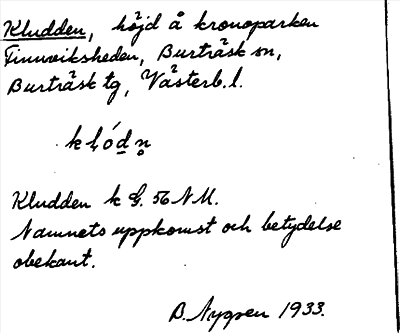 Kludden, höjd å kronoparken
Finnviksheden, Burträsk sn,
Burträsk tg, Västerb. l.
Kludden k G. 56 NM.
Namnets uppkomst och betydelse
obekant.
B. Nygren 1933.